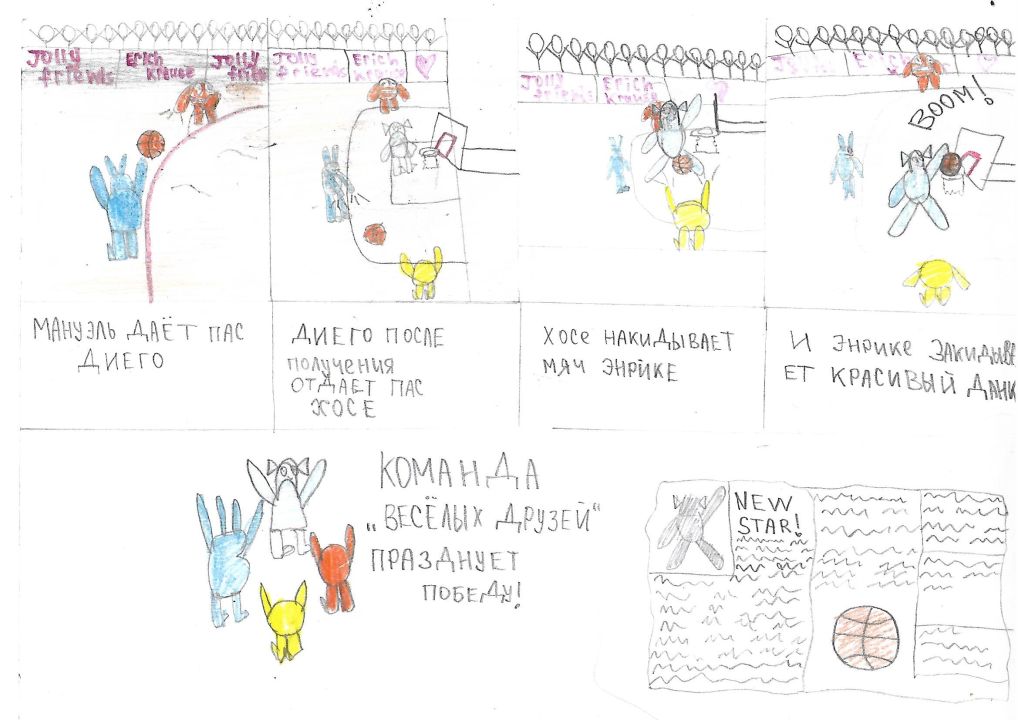 Jolly friends
Erich Krause
Jolly friends
Jolly friends
Erich Krause
Jolly friends
Erich Krause
Jolly friends
BOOM!
МАНУЭЛЬ ДАЁТ ПАС
ДИЕГО
ДИЕГО ПОСЛЕ
получения
ОТДАЕТ ПАС
ХОСЕ
ХОСЕ НАКИДЫВАЕТ
МЯЧ ЭНРИКЕ
И ЭНРИКЕ ЗАКИДЫВА
ЕТ КРАСИВЫЙ ДАНК
КОМАНДА
„ВЕСЁЛЫХ ДРУЗЕЙ“
ПРАЗДНУЕТ
ПОБЕДУ!
NEW
STAR!